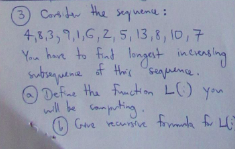 ③ Consider the sequence:
4,8,3,9,1,6,2,5,13,8,10,7
You have to find longest increasing
subsequence of this sequence.
ⓐ Define the function L(i) you
will be computing.
ⓑ Give recursive formula for L(i)